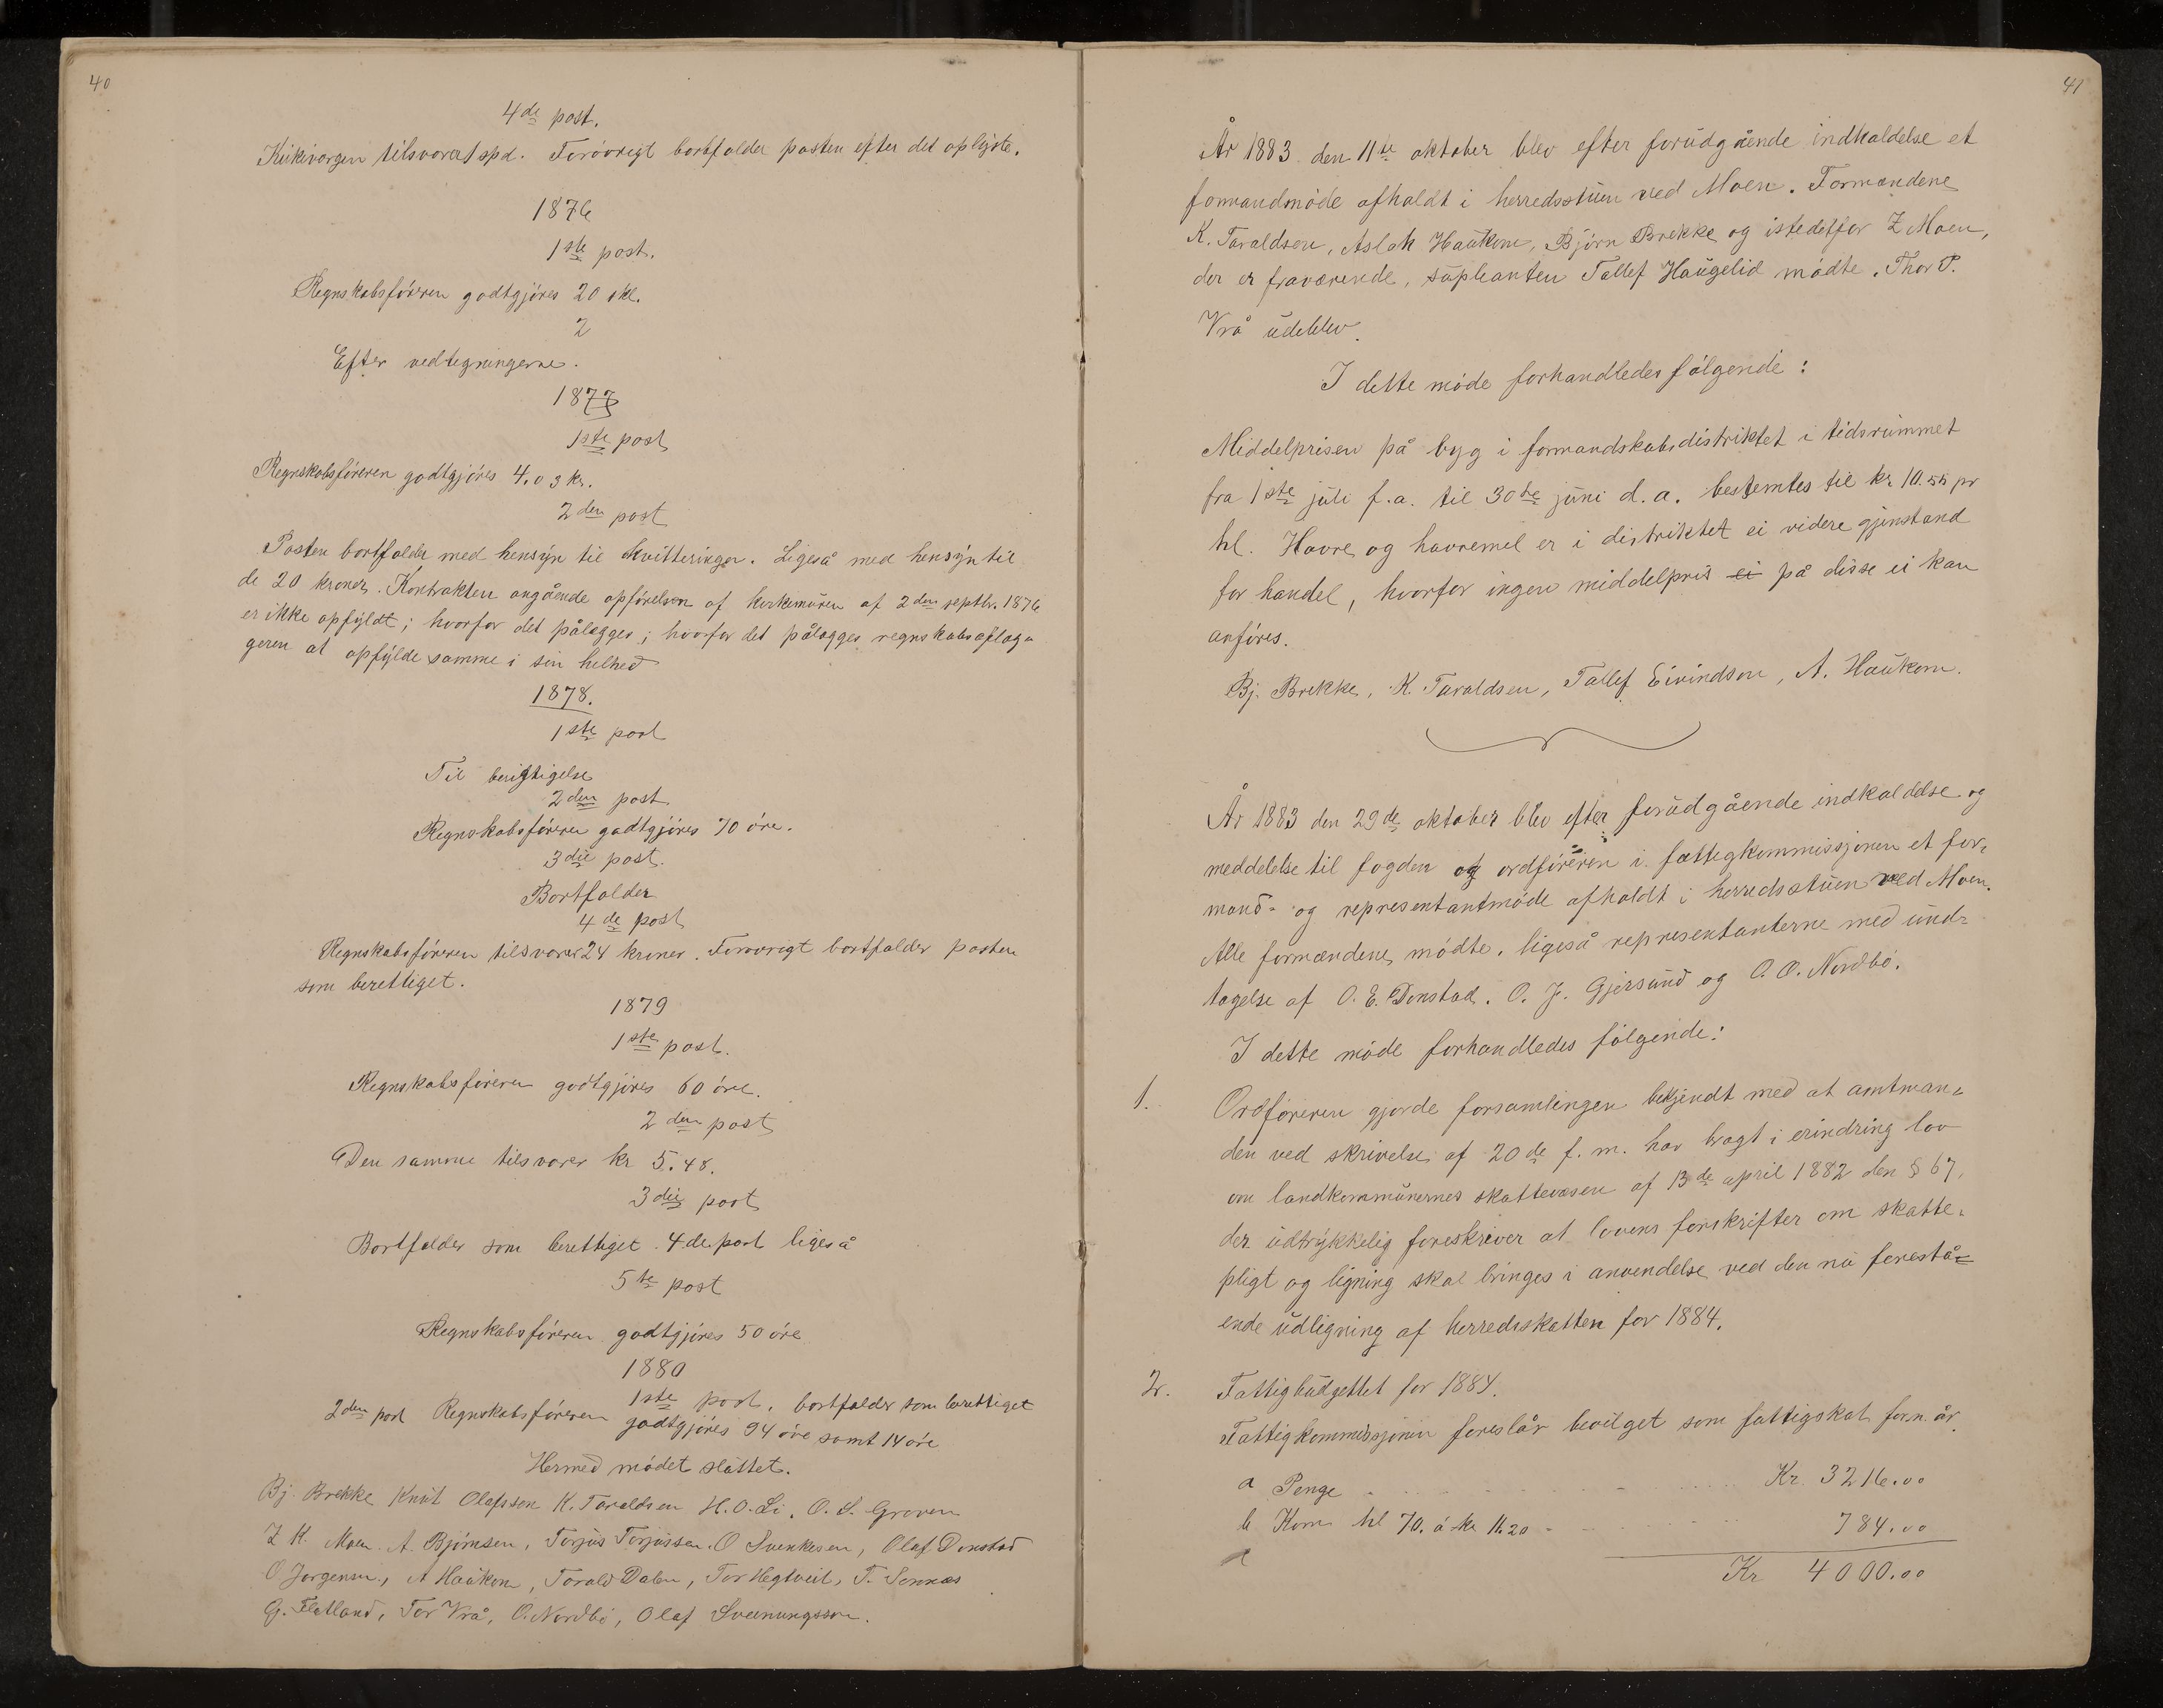 40
4de post.
Kirkivergen tilsvarer 1 spd. Forövrigt bortfalder posten efter det oplyste.
1876
1ste post.
Regnskabsföreren godtgjöres 20 skl.
2
Efter vedtegningerne.
1877
1ste post
Regnskabsföreren godtgjöres 4.03 kr.
2den post
Posten bortfalder med hensyn til kvitteringer. Ligeså med hensyn til
de 20 kroner. Kontrakten angående opförelsen af kirkemuren af 2den septbr. 1876
er ikke opfyldt; hvorfor det pålægges; hvorfor det pålægges regnskabsaflæg=
geren at opfylde samme i sin helhed
1878.
1ste post
Til berigtigelse
2den post.
Regnskabsföreren godtgjöres 70 öre.
3die post.
Bortfalder
4de post
Regnskabsföreren tilsvarer 24 kroner. Forövrigt bortfalder posten
som berettiget.
1879
1ste post.
Regnskabsföreren godtgjöres 60 öre.
2den post
Den samme tilsvarer kr 5.48.
3die post
Bortfalder som berettiget. 4de post ligeså
5te post
Regnskabsföreren godtgjöres 50 öre
1880
1ste post. bortfalder som berettiget
2den post Regnskabsföreren godtgjöres 94 öre samt 14 öre
Hermed mödet sluttet.
Bj. Brekke Knut Olafsson K. Taraldsen H. O. Li. O. S. Groven
Z K. Moen. A. Björnsen, Torjus Torjussen. O Svenkesen, Olaf Dønstad
O Jørgensen, A Haukom, Torald Dalen, Tor Hegtveit, T. Sønnæs
G. Flatland, Tor Vrå, O. Nordbö, Olaf Sveinungsson.
41
År 1883 den 11te oktober blev efter forudgående indkaldelse et
formandmöde afholdt i herredsstuen ved Moen. Formændene
K. Taraldsen, Aslak Haukom, Björn Brekke og istedetfor Z Moen,
der er fraværende, supleanten Tallef Haugelid mödte. Thor P.
Vrå udeblev.
I dette möde forhandledes fölgende:
Middelprisen på byg i formandskabsdistriktet i tidsrummet
fra 1ste juli f.a. til 30te juni d.a. bestemtes til kr 10.55 pr
hl. Havre og havremel er i distriktet ei videre gjenstand
for handel, hvorfor ingen middelpris ei på disse ei kan
anföres.
Bj. Brekke, K. Taraldsen, Tallef Eivindson, A. Haukom.
År 1883 den 29de oktober blev efter forudgående indkaldelse og
meddelelse til fogden og ordföreren i fattigkommissjonen et for=
mand- og representantmöde afholdt i herredsstuen ved Moen.
Alle formændene mödte. ligeså representanterne med und=
tagelse af O. E. Dønstad. O. J. Gjersund og O. O. Nordbö.
I dette möde forhandledes fölgende:
1. Ordföreren gjorde forsamlingen bekjendt med at amtman=
den ved skrivelse af 20de f. m. har bragt i erindring lov
om landkommunernes skattevæsen af 13de april 1882 den § 67,
der udtrykkelig foreskriver at lovens forskrifter om skatte=
pligt og ligning skal bringes i anvendelse ved den nu forestå=
ende udligning af herredsskatten for 1884.
2. Fattigbudgettet for 1884.
Fattigkommissjonen foreslår bevilget som fattigskat for n. år.
a Penge Kr. 3216.00
b Korn hl 70. á kr 11.20 784.00
Kr 4000.00